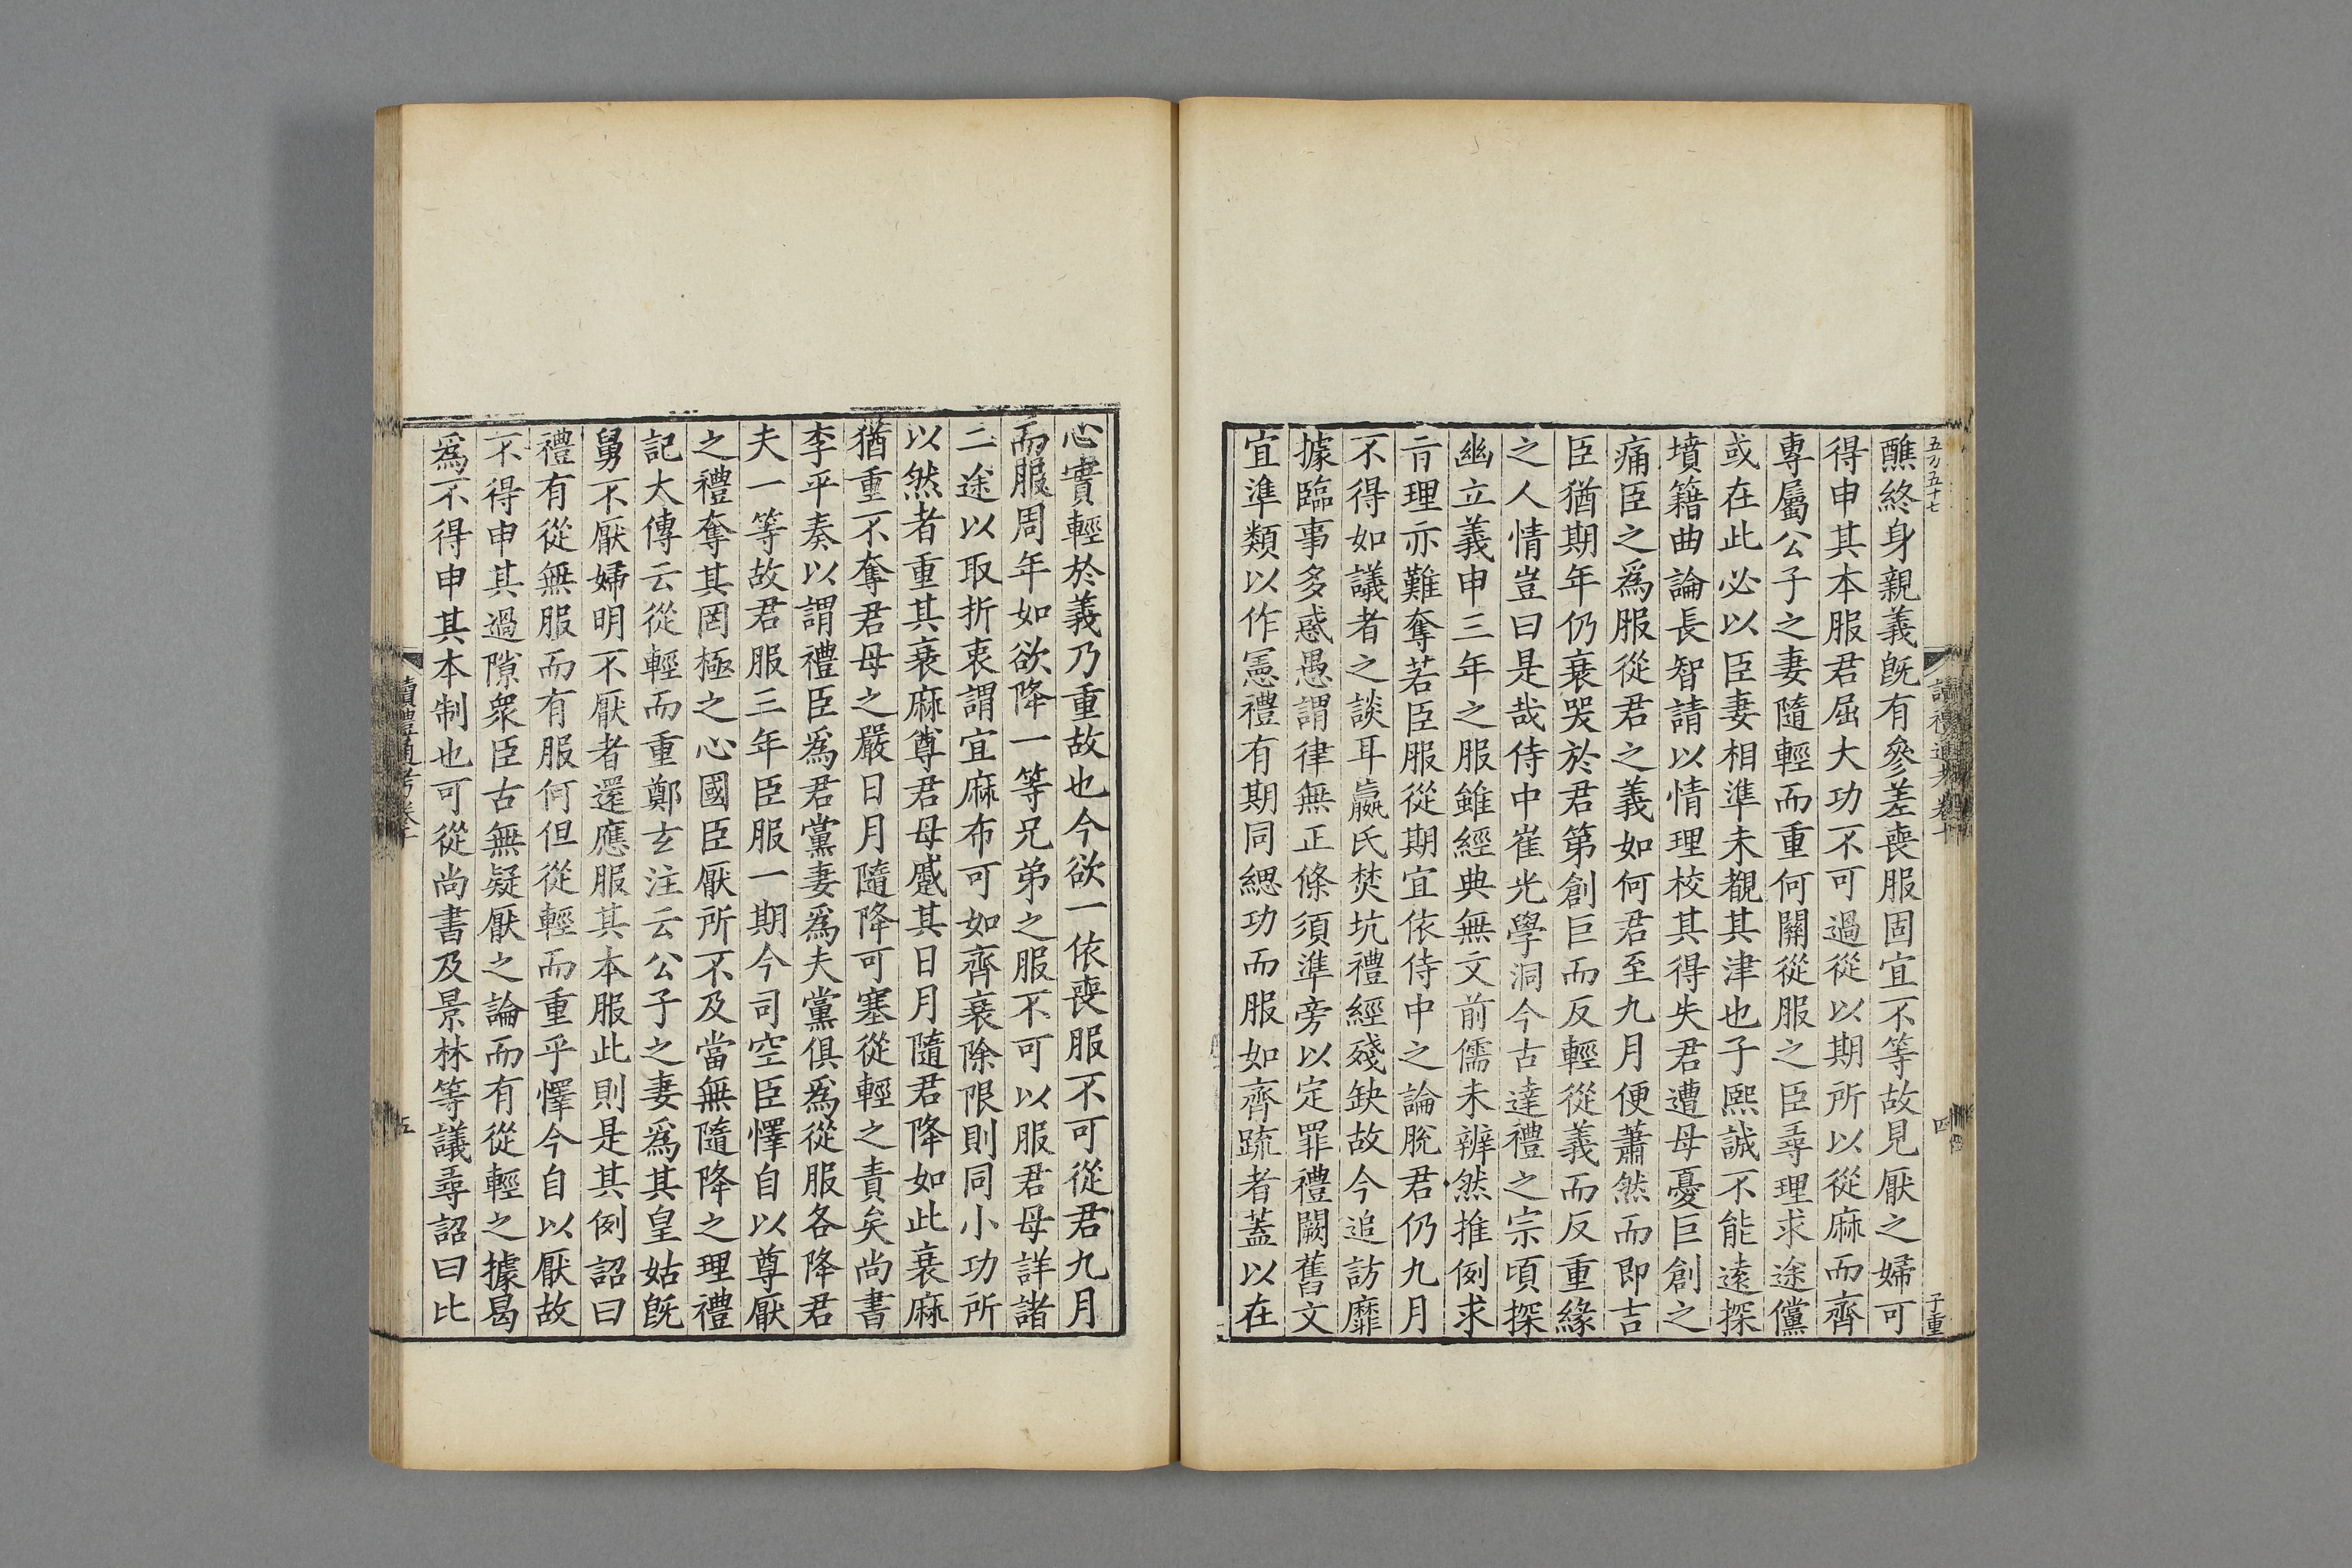 五万五十七
讀禮通考卷十
四
子重
醮終身親義旣有參差喪服固宜不等故見厭之婦可
得申其本服君屈大功不可過從以期所以從麻而齊
專屬公子之妻隨輕而重何關從服之臣尋理求途儻
或在此必以臣妻相準未覩其津也子熙誠不能遠探
墳籍曲論長智請以情理校其得失君遭母憂巨創之
痛臣之爲服從君之義如何君至九月便蕭然而卽吉
臣猶期年仍衰哭於君第創巨而反輕從義而反重緣
之人情豈曰是哉侍中崔光學洞今古達禮之宗頃探
幽立義申三年之服雖經典無文前儒未辨然推例求
旨理亦難奪若臣服從期宜依侍中之論脫君仍九月
不得如議者之談耳嬴氏焚坑禮經殘缺故今追訪靡
據臨事多惑愚謂律無正條須準旁以定罪禮闕舊文
宜準類以作憲禮有期同緦功而服如齊疏者蓋以在
心實輕於義乃重故也今欲一依喪服不可從君九月
而服周年如欲降一等兄弟之服不可以服君母詳諸
二途以取折衷謂宜麻布可如齊衰除限則同小功所
以然者重其衰麻尊君母蹙其日月隨君降如此衰麻
猶重不奪君母之嚴日月隨降可塞從輕之責矣尚書
李平奏以謂禮臣爲君黨妻爲夫黨俱爲從服各降君
夫一等故君服三年臣服一期今司空臣懌自以尊厭
之禮奪其罔極之心國臣厭所不及當無隨降之理禮
記大傳云從輕而重鄭玄注云公子之妻爲其皇姑旣
舅不厭婦明不厭者還應服其本服此則是其例詔曰
禮有從無服而有服何但從輕而重乎懌今自以厭故
不得申其過隙衆臣古無疑厭之論而有從輕之據曷
爲不得申其本制也可從尚書及景林等議尋詔曰比
讀禮通考卷十
五